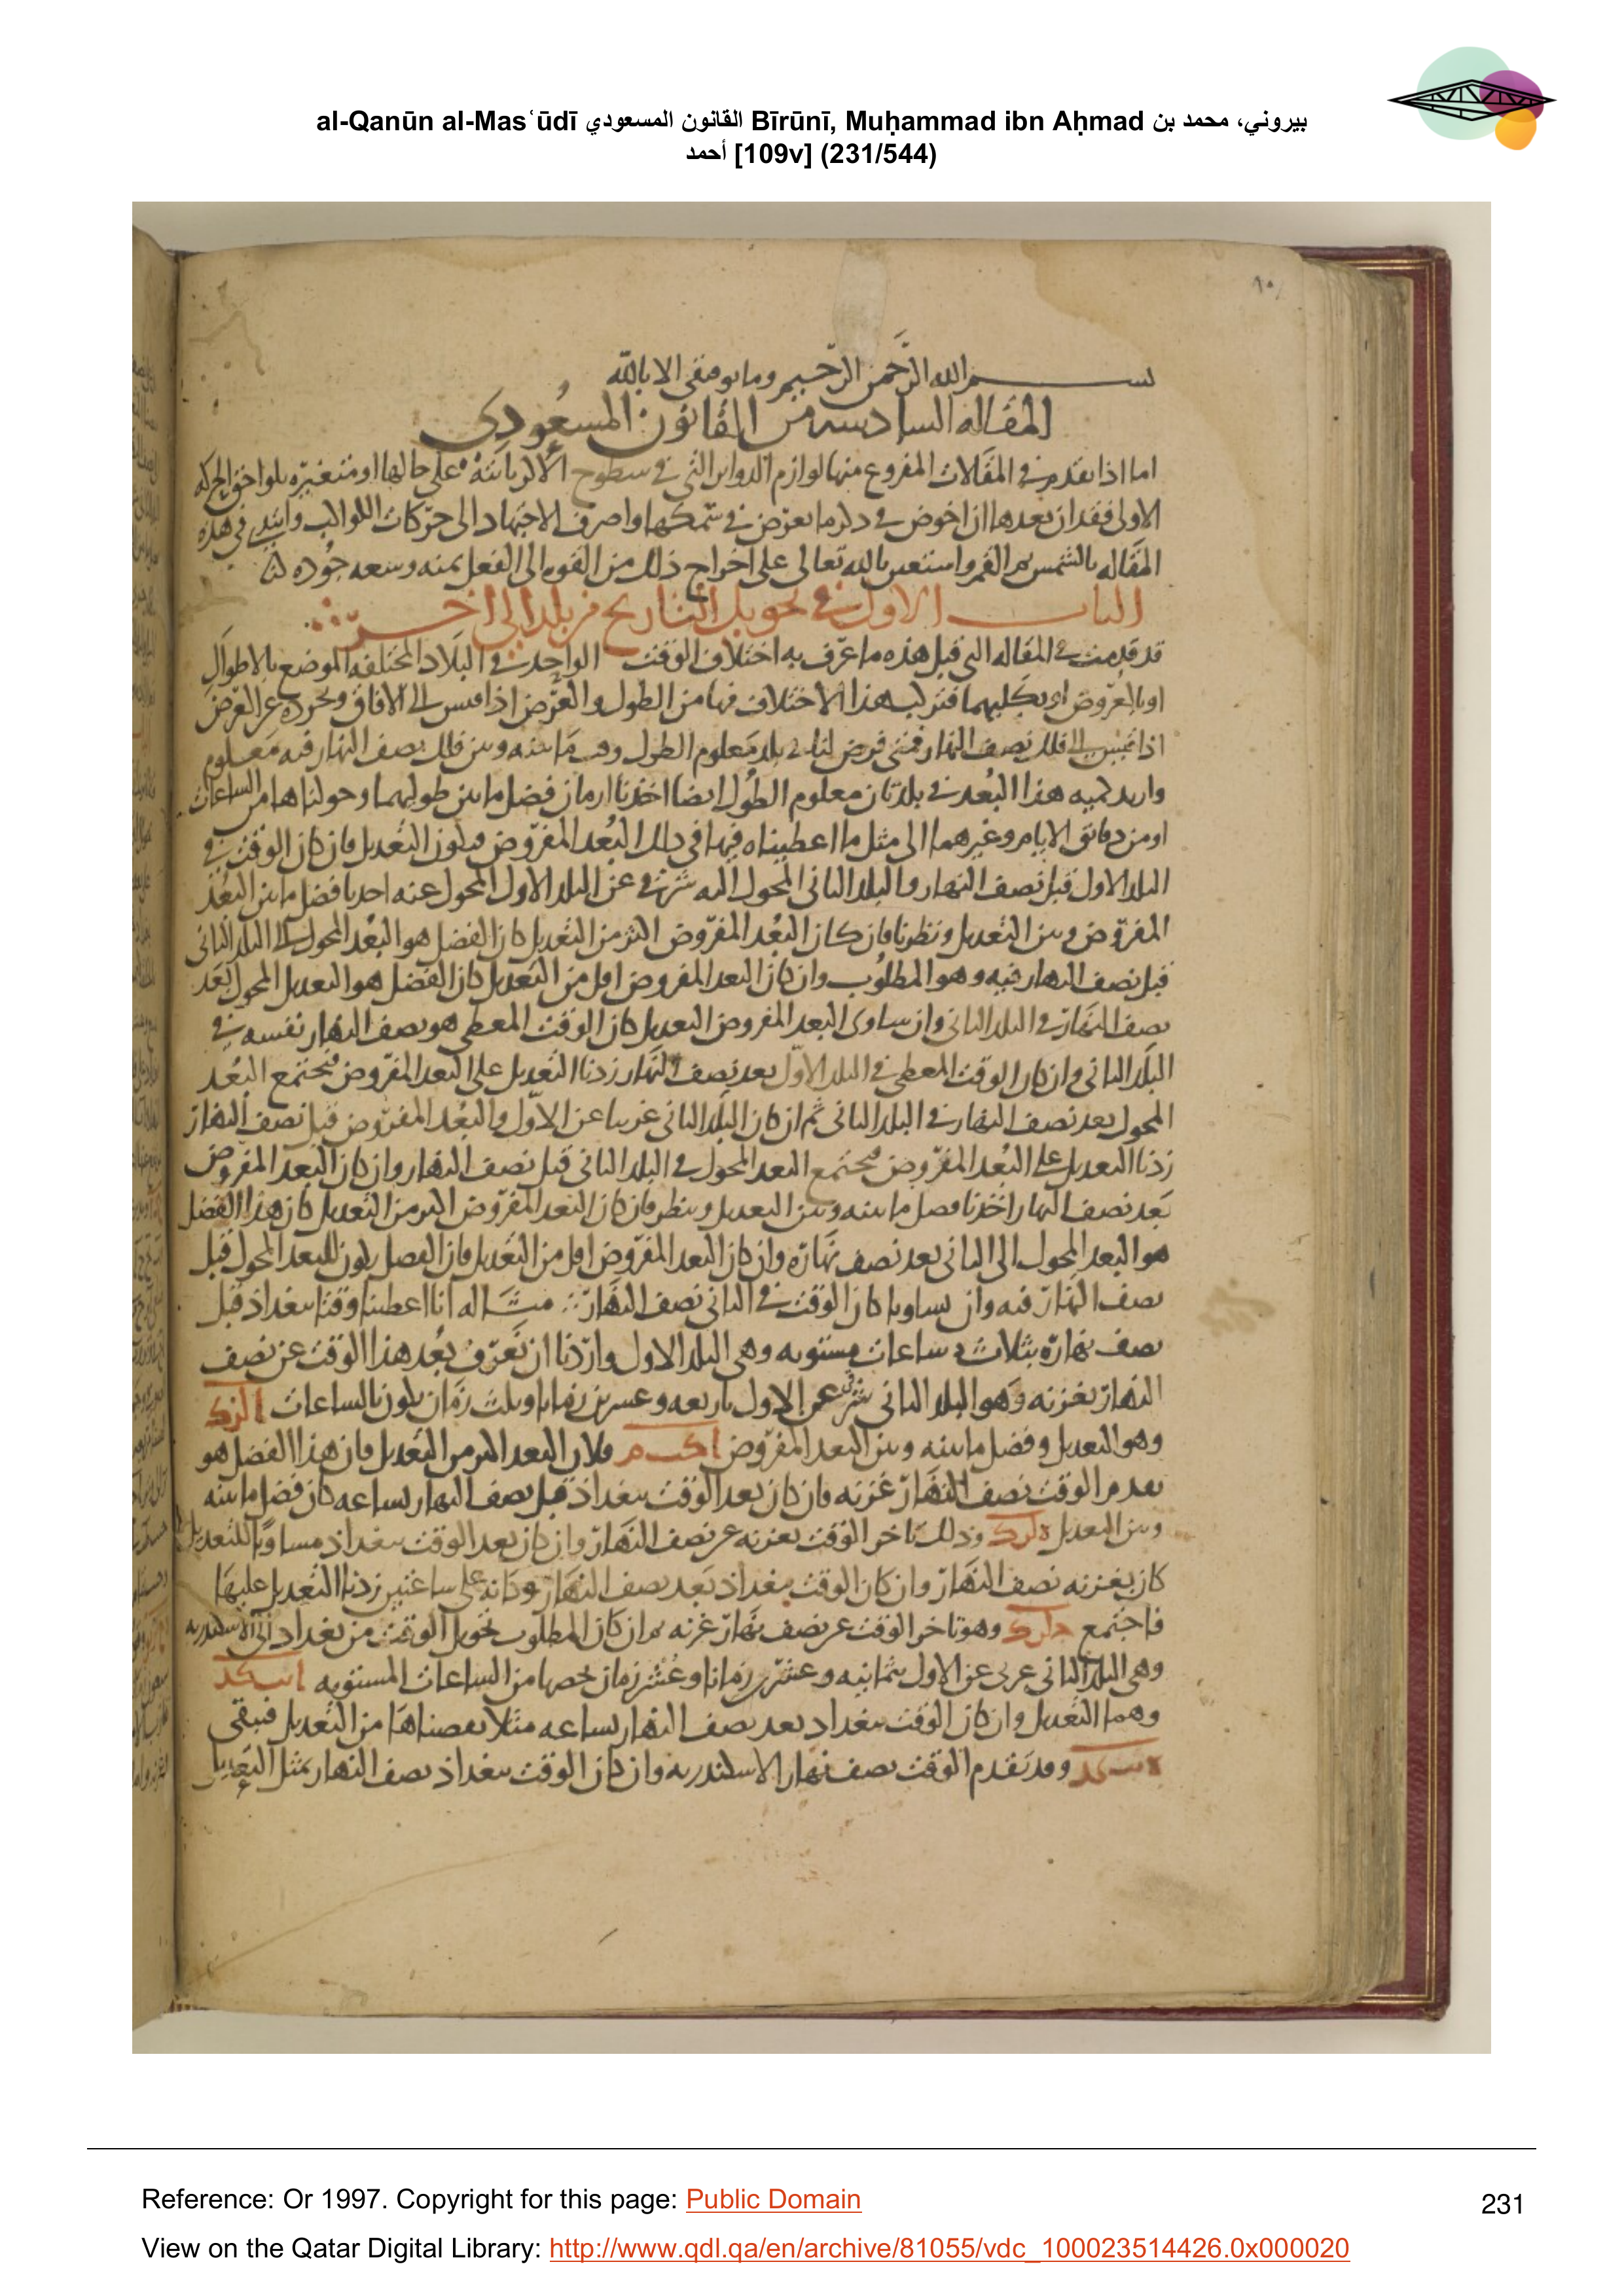 al-Qanūn al-Masʿūdī القانون المسعودي Bīrūnī, Muḥammad ibn Aḥmad بيروني، محمد بن
أحمد [109v] (231/544)
بسم الله الرحمن الرحيم وما توفيقي الا بالله
المقاله السادسه من القانون المسعودي
اما اذا تقدم في المقالات المفروغ منها لوازم الدوائر التي في سطوح الاكر ثابتة على حالها او متغيره بلواحق الحركه
الاولى فقد ان بعدها ان اخوض في ذكر ما يعرض في سمكها واصرف الاجتهاد الى حركات اللوالب وابتدى في هذه
المقاله بالشمس ثم القمر واستعين بالله تعالى على اخراج ذلك من القوه الى الفعل بمنه وسعه جوده
الباب الاول في تحويل التاريخ من بلد الى اخر
قد قدمت في المقاله التي قبل هذه ما عرف به اختلاف الوقت الواحد في البلاد المختلفه الموضع بالاطوال
او بالعروض او بكليهما فتركب هذا الاختلاف فيها من الطول والعرض اذا قيس الى الافاق وتجرده عن العرض
اذا قيس الى فلك نصف النهار فمتى فرض لنا في بلد معلوم الطول وقت ما بينه وبين فلك نصف النهار فيه معلوم
واريد كميه هذا البعد في بلد ثان معلوم الطول ايضا اخذنا ازمان فضل ما بين طوليهما وحولناها من الساعات
او من دقائق الايام وغيرهما الى مثل ما اعطيناه فيها في ذلك البعد المفروض فيكون التعديل فان كان الوقت في
البلد الاول قبل نصف النهار والبلد الثاني المحول اليه شرقي عن البلد الاول المحول عنه اخذنا فضل ما بين البعد
المفروض وبين التعديل ونظرنا فان كان البعد المفروض اكثر من التعديل كان الفضل هو البعد المحول الى البلد الثاني
قبل نصف النهار فيه وهو المطلوب وان كان البعد المفروض اقل من التعديل كان الفضل هو التعديل المحول بعد
نصف النهار في البلد الثاني وان ساوى البعد المفروض التعديل كان الوقت المعطى هو نصف النهار نفسه في
البلد الثاني وان كان الوقت المعطى في البلد الاول بعد نصف النهار زدنا التعديل على البعد المفروض فيجتمع البعد
المحول بعد نصف النهار في البلد الثاني ثم ان كان البلد الثاني غربيا عن الاول والبعد المفروض قبل نصف النهار
زدنا التعديل على البعد المفروض فيجتمع البعد المحول في البلد الثاني قبل نصف النهار وان كان البعد المفروض
بعد نصف النهار اخذنا فضل ما بينه وبين التعديل وننظر فان كان البعد المفروض اكثر من التعديل كان هذا الفضل
هو البعد المحول الى الثاني بعد نصف نهاره وان كان البعد المفروض اقل من التعديل فان الفضل يكون للبعد المحول قبل
نصف النهار فيه وان تساويا كان الوقت في الثاني نصف النهار مثاله انا اعطينا وقتا ببغداذ قبل
نصف نهاره بثلاث ساعات مستويه وهي البلد الاول واردنا ان نعرف بعد هذا الوقت عن نصف
النهار بغزنه وهو البلد الثاني شرقي عن الاول باربعه وعشرين زمانا وثلث زمان يكون بالساعات ا لز ك
وهو التعديل وفضل ما بينه وبين البعد المفروض ا كب م فلان البعد اكثر من التعديل فان هذا الفضل هو
تقدم الوقت نصف النهار غزنه فان كان بعد الوقت ببغداذ قبل نصف النهار بساعه كان فضل ما بينه
وبين التعديل ه لز ك وذلك تاخر الوقت بغزنه عن نصف النهار وان كان بعد الوقت ببغداذ مساويا للتعديل
كان بغزنه نصف النهار وان كان الوقت ببغداذ بعد نصف النهار وكانه على ساعتين زدنا التعديل عليها
فاجتمع ج لز ك وهو تاخر الوقت عن نصف نهار غزنه ثم ان كان المطلوب تحويل الوقت من بغداد الى الاسكندريه
وهي البلد الثاني غربي عن الاول بثمانيه وعشرين زمانا وعشر زمان حصها من الساعات المستويه ا نب كد
وهما التعديل وان كان الوقت ببغداد بعد نصف النهار بساعه مثلا نقصناها من التعديل فيبقى
ه نب كد وقد تقدم الوقت نصف نهار الاسكندريه وان كان الوقت ببغداذ نصف النهار بمثل التعديل
Reference: Or 1997. Copyright for this page: Public Domain
231
View on the Qatar Digital Library: http://www.qdl.qa/en/archive/81055/vdc_100023514426.0x000020